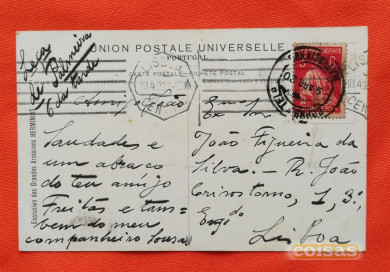 UNION POSTALE UNIVERSELLE
PORTUGAL
CARTE POSTALE
BILHETE POSTAL
Leça
da Palmeira
6 da tarde
Saudades e
um abraço
do teu amigo
Freitas e tam-
bem do meu
companheiro Sousa.
João Figueira da
Silva. — R. João
Crisostomo, 1, 3º,
Esqdo
Lisboa
Exclusivo dos Grandes Armazens HERMINIOS
coisas